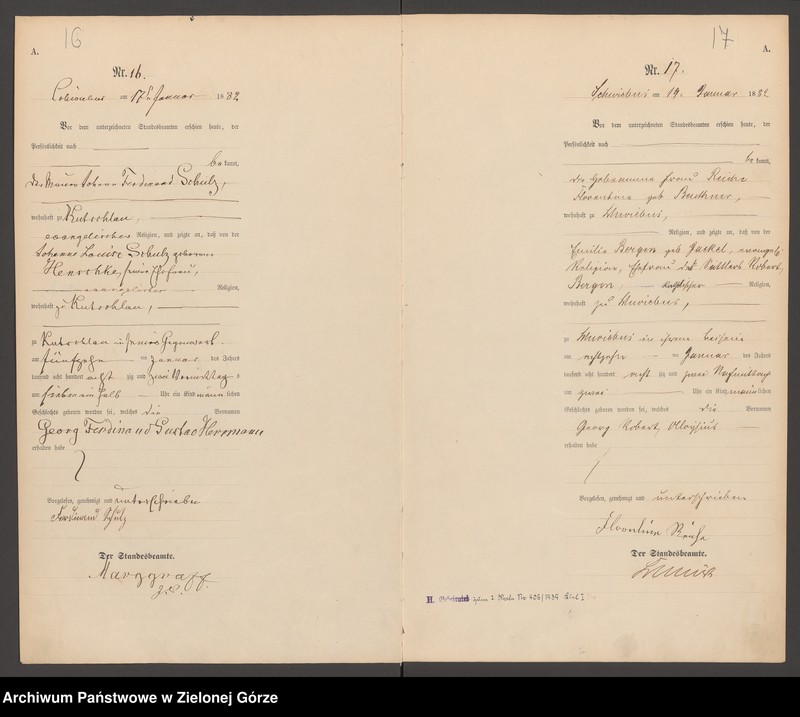 16
A.
Nr. 16.
am 17ten Januar 1882
Vor dem unterzeichneten Standesbeamten erschien heute, der
Persönlichkeit nach
be kannt,
der Maurer Johann Ferdinand Schulz,
wohnhaft zu Kutschlau,
evangelischer Religion, und zeigte an, daß von der
Johanne Louise Schulz geborene
Henschke, seine Ehefrau,
evangelischer Religion,
wohnhaft zu Kutschlau,
zu Kutschlau in seiner Gegenwart
am fünfzehn ten Januar des Jahres
tausend acht hundert acht zig und zwei Vormittags
um sieben ein halb Uhr ein Kind männlichen
Geschlechts geboren worden sei, welches die Vornamen
Georg Ferdinand Gustav Herrmann
erhalten habe
Vorgelesen, genehmigt und unterschrieben
Ferdinand Schulz
Der Standesbeamte.
Marggraff
17
A.
Nr. 17.
Schwiebus am 19. Januar 1882
Vor dem unterzeichneten Standesbeamten erschien heute, der
Persönlichkeit nach
be kannt,
die Hebeamme Frau
Florentine geb
wohnhaft zu Schwiebus,
Religion, und zeigte an, daß von der
Emilie Bergen geb Jaekel, evangelischer
Religion, Ehefrau des Sattlers Robert
Bergen, katholischer Religion,
wohnhaft zu Schwiebus,
zu Schwiebus in ihrem Beisein
am ten Januar des Jahres
tausend acht hundert acht zig und zwei Nachmittags
um zwei Uhr ein Kind männlichen
Geschlechts geboren worden sei, welches die Vornamen
Georg Robert Alloysius
erhalten habe
Vorgelesen, genehmigt und unterschrieben
Florentine
Der Standesbeamte.
H. Nr 406/1939
Archiwum Państwowe w Zielonej Górze